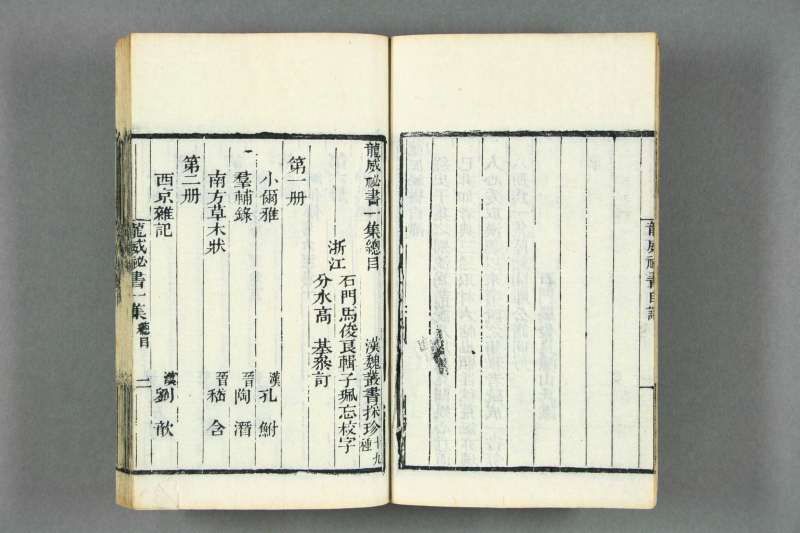 龍威祕書自識
龍威祕書一集總目 漢魏叢書採珍十九種
浙江 石門馬俊良輯子珮忘校字
分水高 基參訂
第一册
小爾雅 漢孔鮒
羣輔錄 晉陶潛
南方草木狀 晉嵇含
第二册
西京雜記 漢劉歆
龍威祕書一集 總目 一